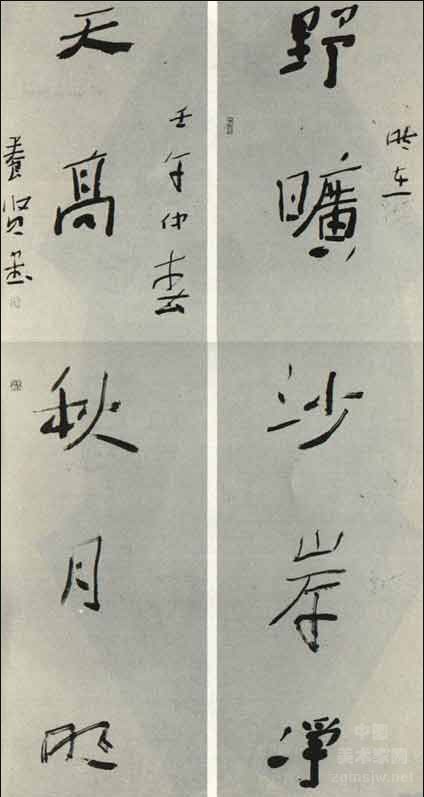 时在
野曠沙岸淨
壬午仲春
天高秋月明
養贤
中国
美术家网
zgmsjw.net